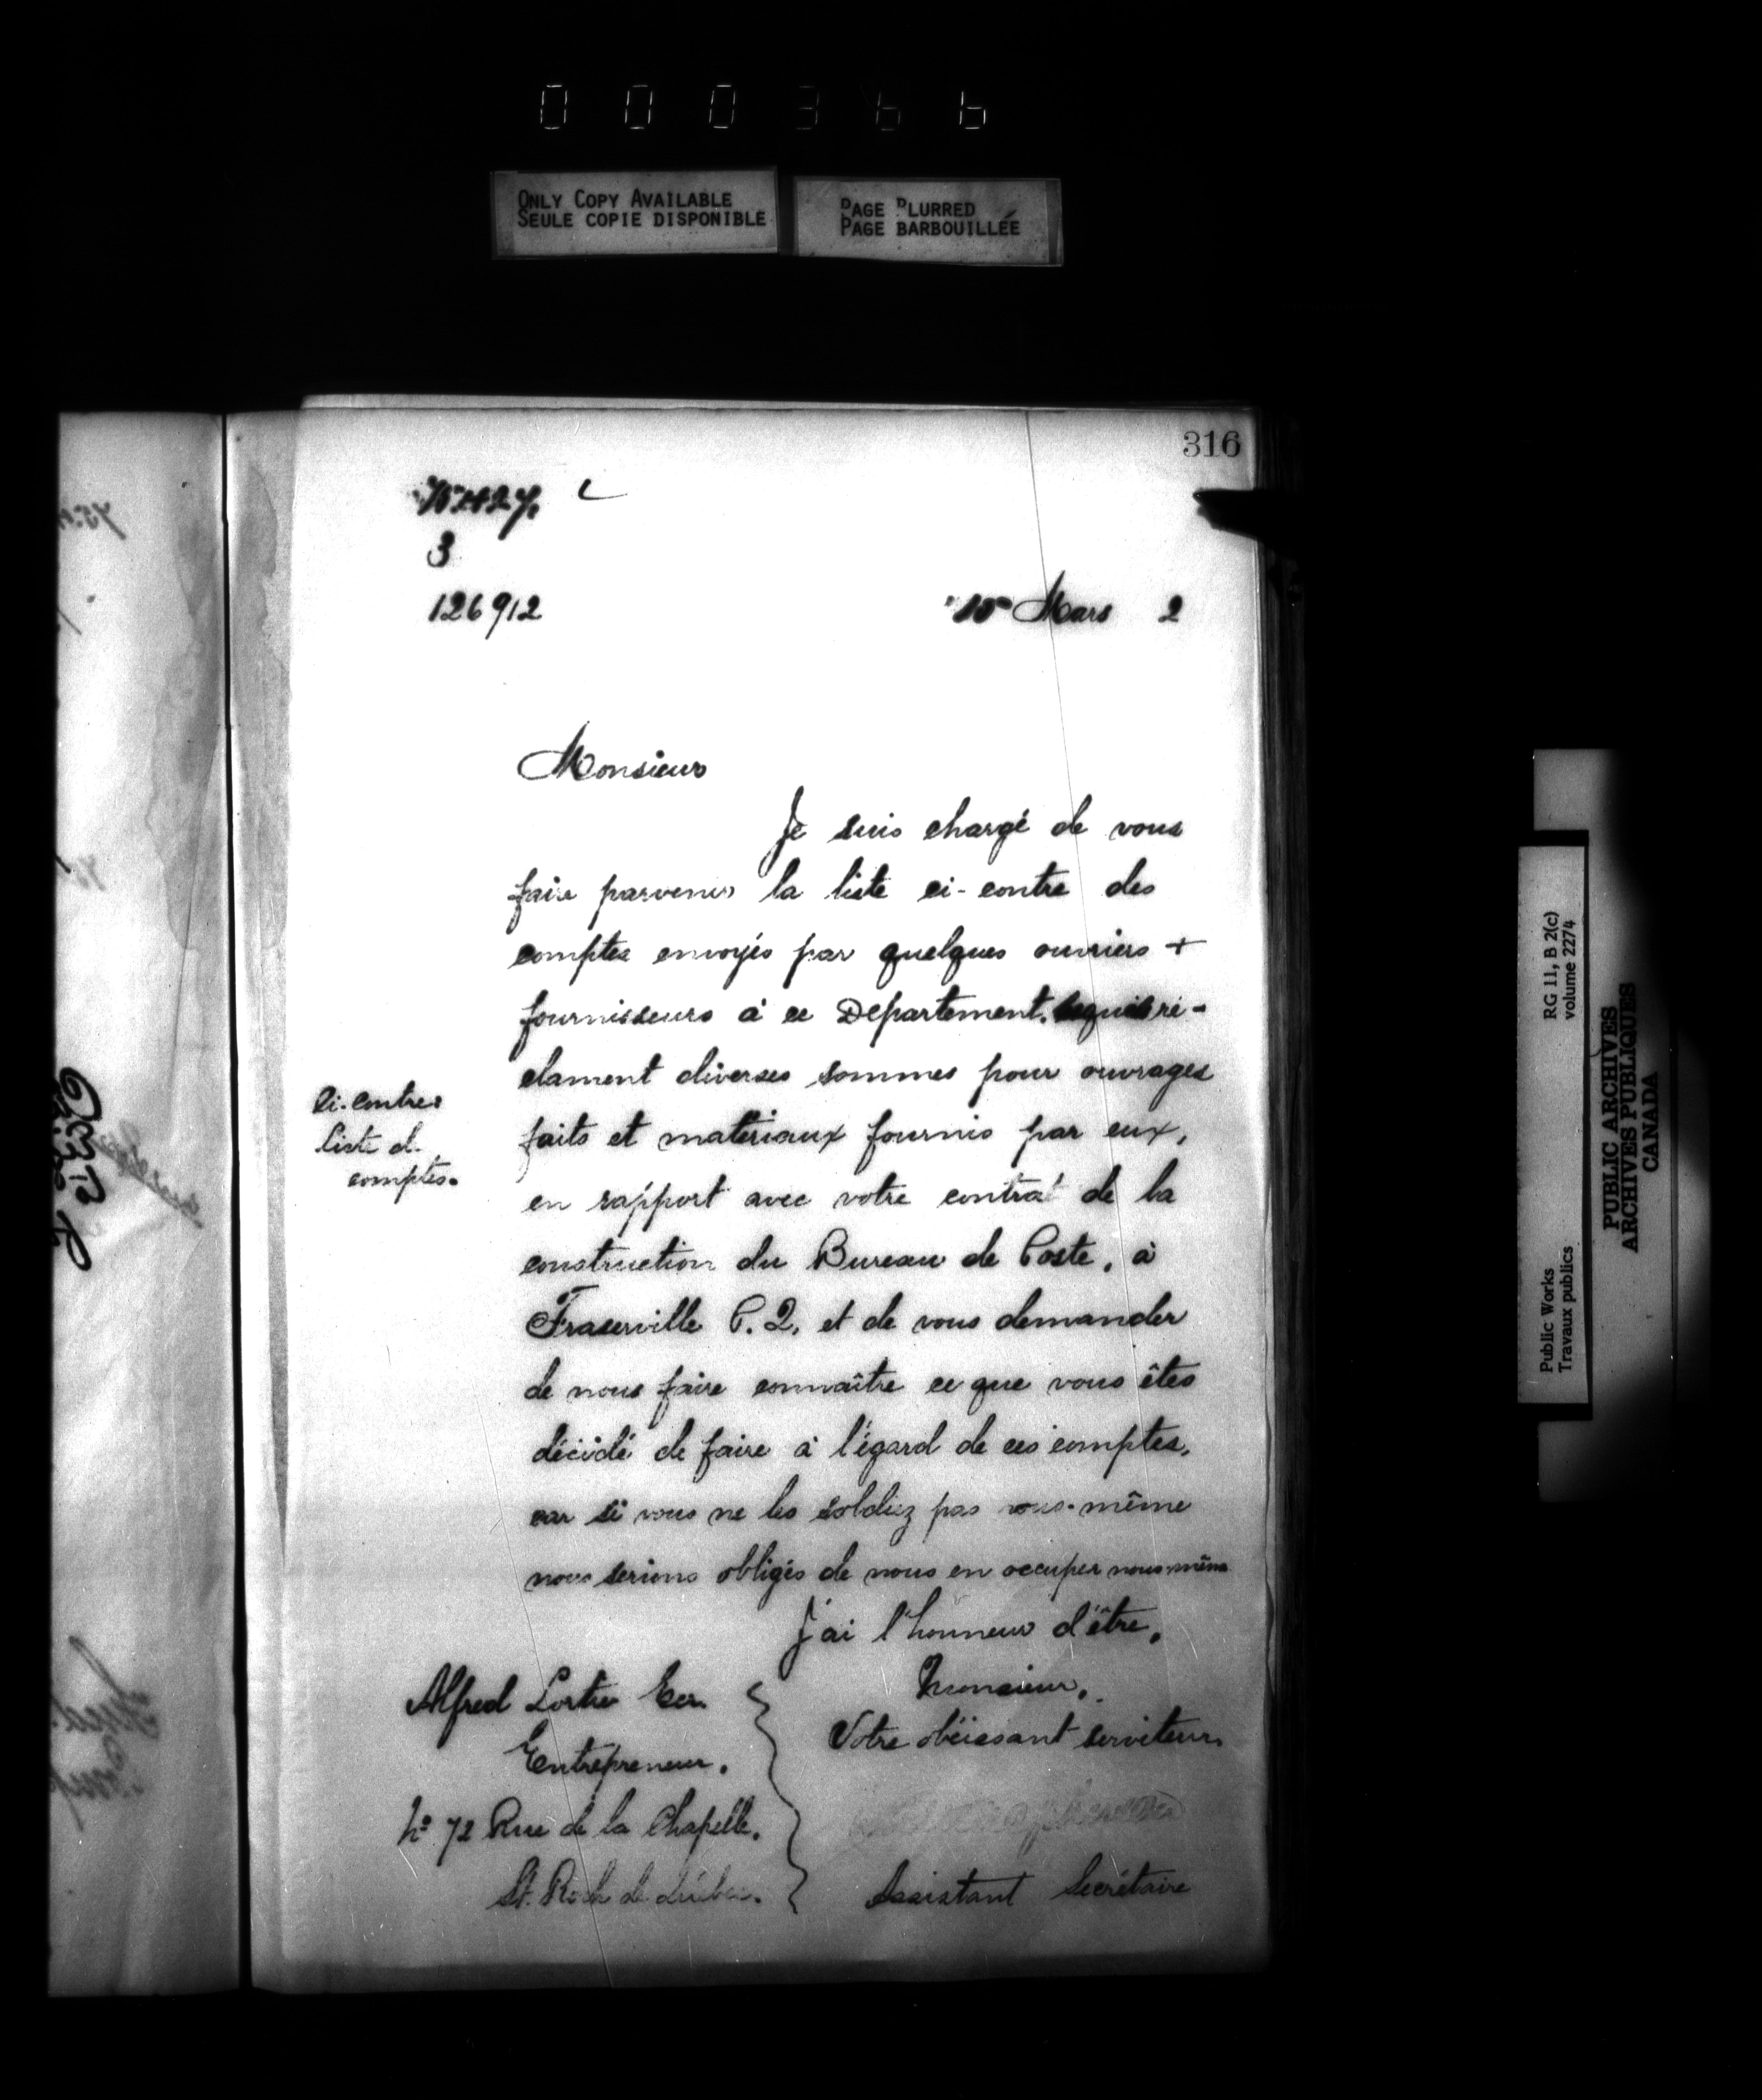 000366
ONLY COPY AVAILABLE
SEULE COPIE DISPONIBLE
PAGE BLURRED
PAGE BARBOUILLÉE
316
3
126912
Mars 2
Monsieur
Je suis chargé de vous
faire parvenir la liste ci-contre des
comptes envoyés par quelques ouvriers +
fournisseurs à ce Departement. ré-
clament diverses sommes pour ouvrages
faits et matériaux fournis par eux,
en rapport avec votre contrat de la
construction du Bureau de Poste, à
Fraserville P.Q, et de vous demander
de nous faire connaître ce que vous êtes
décidé de faire à l'égard de ces comptes,
car si vous ne les soldiez pas vous-même
nous serions obligés de nous en occuper nous-même
Ci-contre:
Liste d.
comptes.
J'ai l'honneur d'être,
Monsieur,
Votre obéissant serviteur,
Assistant Secrétaire
Alfred Ecr.
Entrepreneur.
No 72 Rue de la Chapelle.
St. Roch de Québec.
Public Works
Travaux publics
RG 11, B 2(c)
volume 2274
PUBLIC ARCHIVES
ARCHIVES PUBLIQUES
CANADA